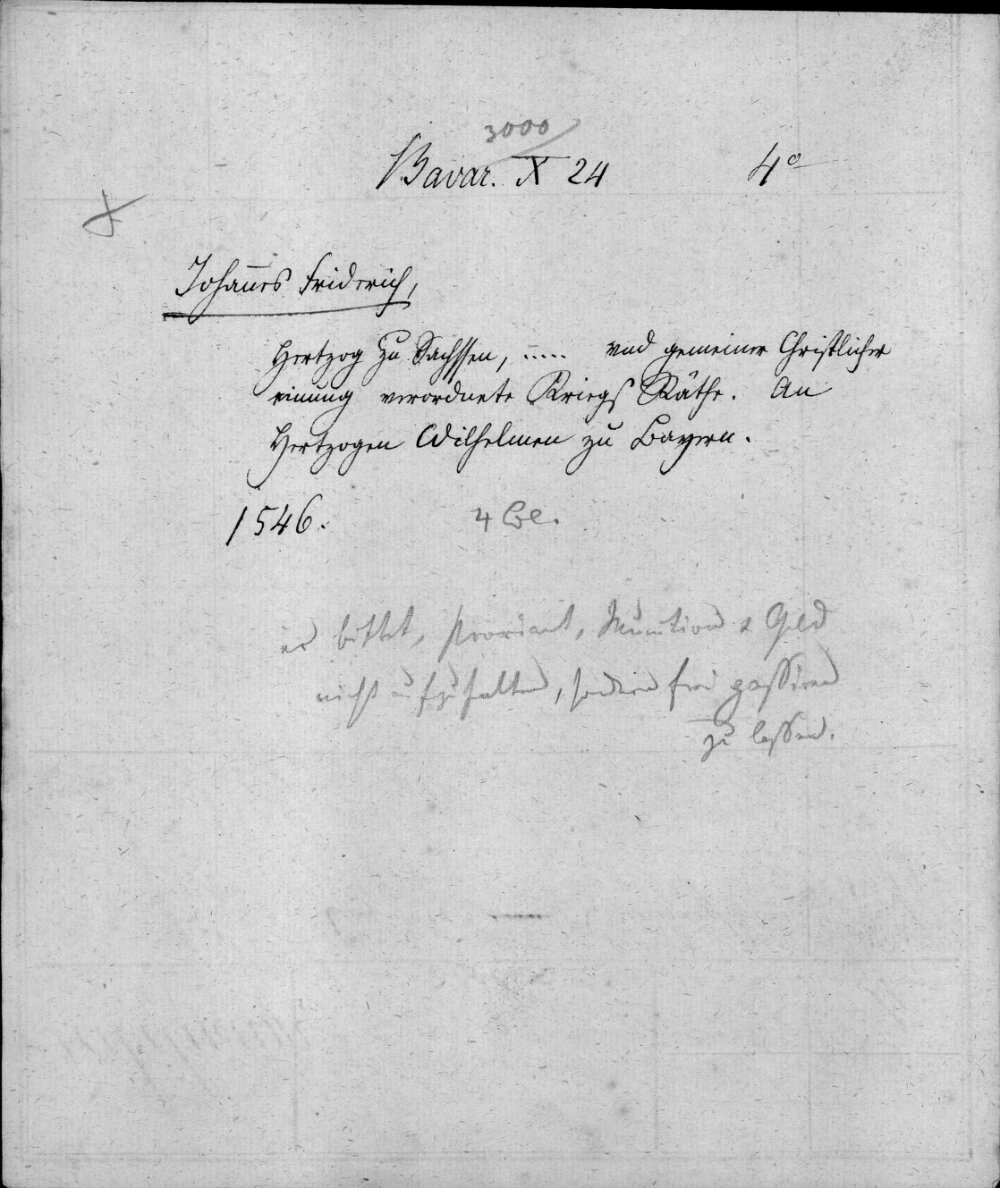 3000
Bavar. X 24 4°
Johannes Friderich,
Hertzog Zu Sachssen, ..... vnd gemeiner Christlicher
einung verordnete Kriegs Räthe. An
Hertzogen Wilhelmen zu Bayern.
1546. 4 Bl.
er bittet, Proviant, Munition & Geld
nicht aufzuhalten, sondern frei passiren
zu lassen.